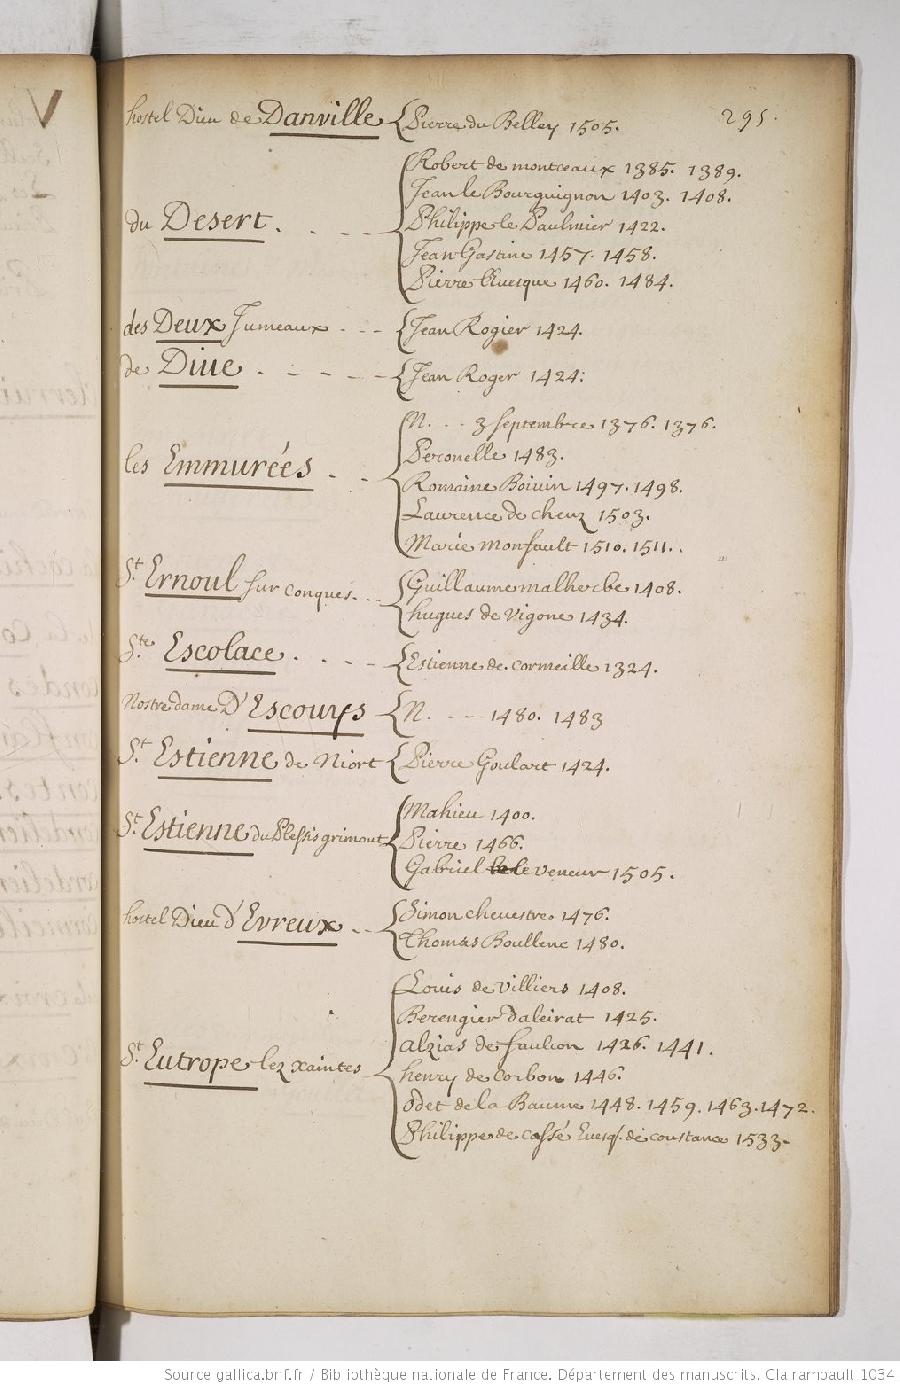 295.
hostel Dieu de Danville { Pierre du Belley 1505.
du Desert. { Robert de montceaux 1385. 1389.
Jean le Bourguignon 1403. 1408.
Philippe le Paulmier 1422.
Jean Gastine 1457. 1458.
Pierre Euesque 1460. 1484.
des Deux Jumeaux { Jean Rogier 1424.
de Diue { Jean Roger 1424.
les Emmurées { N. . . . 3 septembre 1376. 1376.
Peronelle 1483.
Romaine Boiuin 1497. 1498.
Laurence de cheuz 1503.
Marie monfault 1510. 1511.
St. Ernoul sur conques { Guillaume malherbe 1408.
hugues de Vigone 1434.
Ste. Escolace { Estienne de cormeille 1324.
Nostre dame D'Escouys { N. 1480. 1483
St. Estienne de Niort { Pierre Goulart 1424.
St. Estienne du Plessis grimout { Mahieu 1400.
Pierre 1466.
Gabriel le veneur 1505.
hostel Dieu d'Evreux { Simon cheuestre 1476.
Thomas Boullenc 1480.
St. Eutrope lez xaintes { Louis de Villiers 1408.
Berengier Daleirat 1425.
alzias de 1426. 1441.
henry de Corbon 1446.
odet de la Baume 1448. 1459. 1463. 1472.
Philippe de cossé Euesq. de coustance 1533.
Source gallica.bnf.fr / Bibliothèque nationale de France. Département des manuscrits. Clairambault 1034